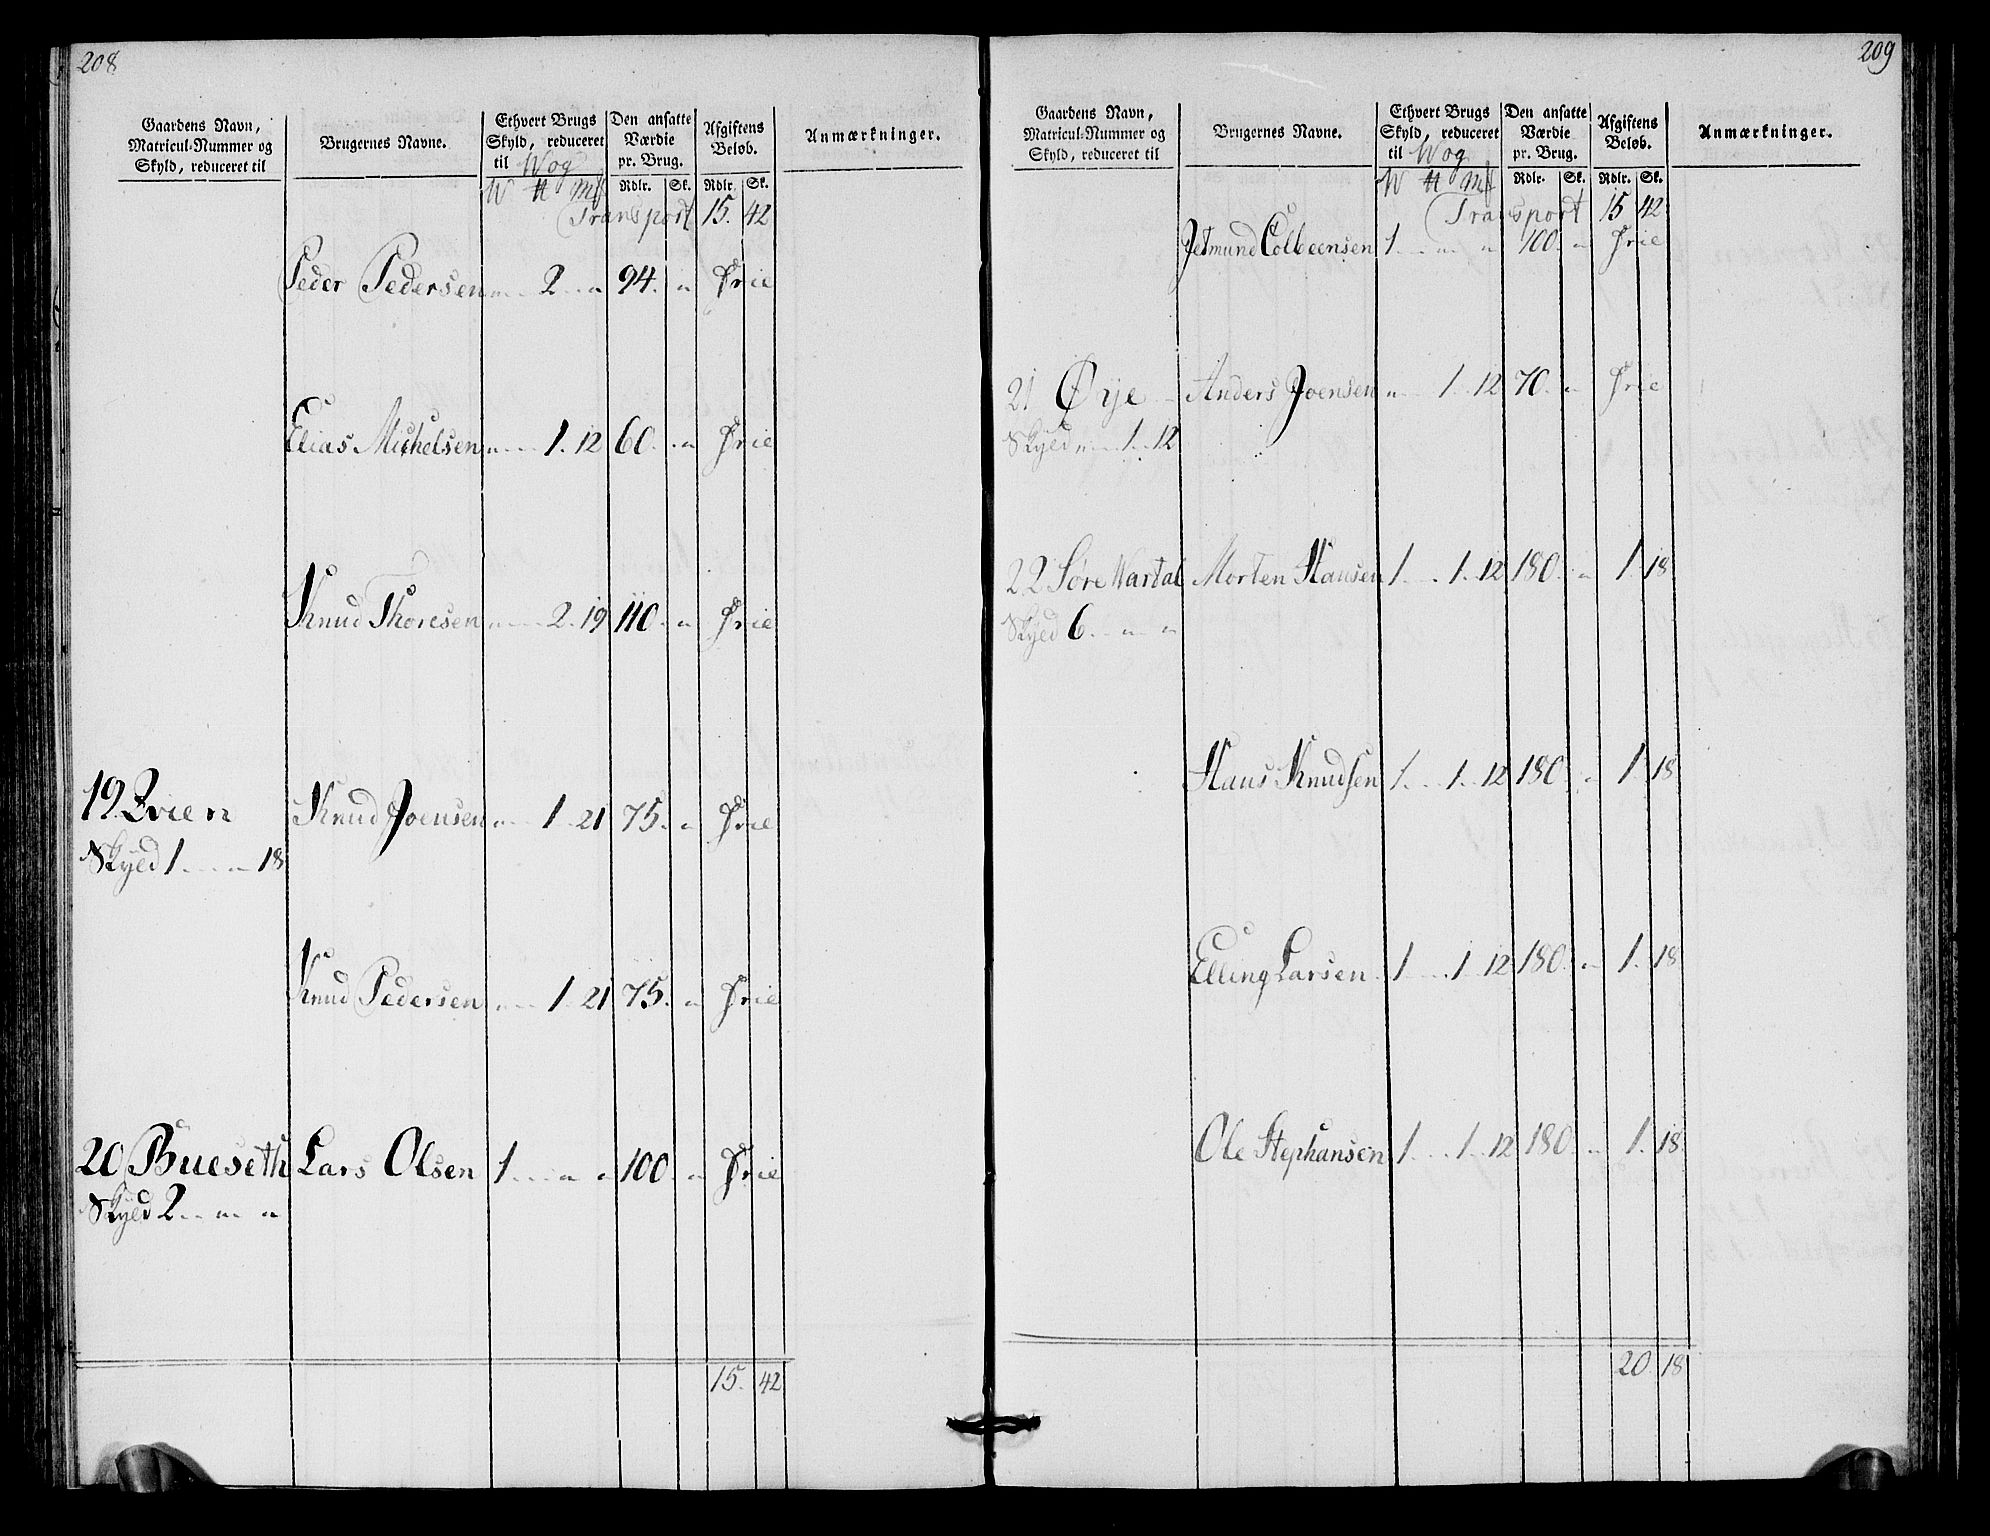 208
Gaardens Navn, Matricul-Nummer og Skyld, reduceret til
Brugernes Navne.
Ethvert Brugs Skyld, reduceret til Wog
Den ansatte Værdie pr. Brug.
Afgiftens Beløb.
Anmærkninger.
W ℔ Mk Rdlr. Sk. Rdlr. Sk.
Transport 15. 42
Peder Pedersen " 2 " 94. " Frie
Elias Michelsen " 1. 12 60. " Frie
Knud Thoresen " 2. 19 110. " Frie
19. Qvien Knud Joensen " 1. 21 75. " Frie
Skyld 1 " 18
Knud Pedersen " 1. 21 75. " Frie
20 Bueseth Lars Olsen 1 " " 100 " Frie
Skyld 2 " "
15. 42
209
Gaardens Navn, Matricul-Nummer og Skyld, reduceret til
Brugernes Navne.
Ethvert Brugs Skyld, reduceret til Wog
Den ansatte Værdie pr. Brug.
Afgiftens Beløb.
Anmærkninger.
W ℔ Mk Rdlr. Sk. Rdlr. Sk.
Transport 15 42
Jetmund Colbeensen 1 " " 100. " Frie
21 Øye Anders Joensen " 1. 12 70. " Frie
Skyld " 1. 12
22 Søre Vartal Morten Hansen 1. 1. 12 180. " 1. 18
Skyld 6. " "
Hans Knudsen 1. 1. 12 180. " 1. 18
Elling Larsen 1. 1. 12 180. " 1. 18
Ole Stephansen 1. 1. 12 180. " 1. 18.
20. 18